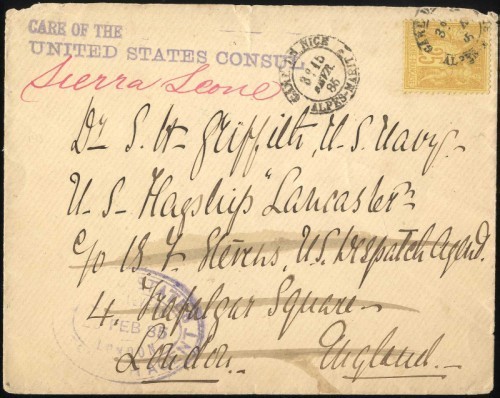 CARE OF THE
UNITED STATES CONSUL
Sierra Leone
GARE DE NICE
ALPES-MARIT
85
Dr S. W. Griffith, U.S. Navy.
U-S- Flagship "Lancaster"
c/o B. F. Stevens, U.S. Despatch Agent.
4, Trafalgar Square
London. England.
FEB 85
LONDON
GARE
ALPES
25